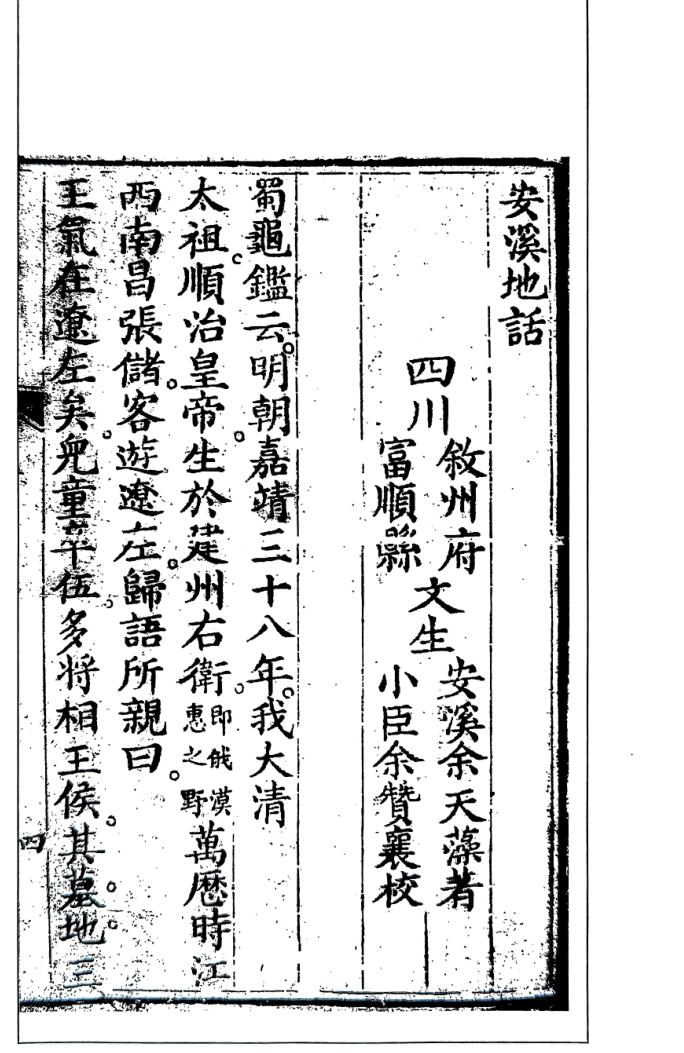 安溪地話
四川敘州府富順縣文生安溪余天藻著小臣余贊襄校
蜀龜鑑云。明朝嘉靖三十八年。我大清
太祖。順治皇帝。生於建州右衛。即俄漠惠之野萬厯時江
西南昌張儲。客遊遼左。歸語所親曰。
王氣在遼左矣。兒童卒伍。多将相王侯。其墓。地。三
四